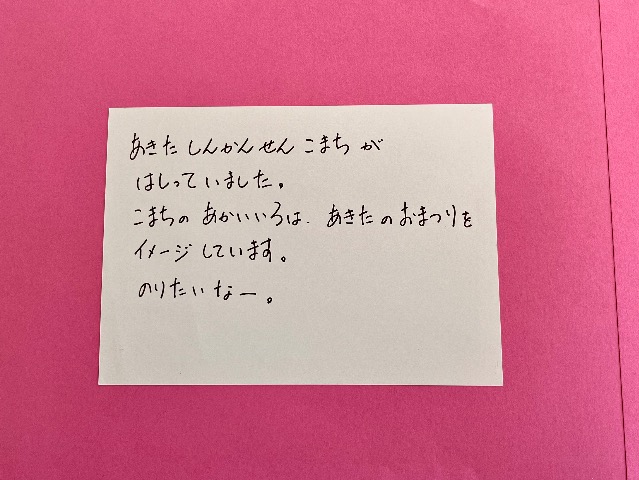 あきた しんかんせん こまち が
はしっていました。
こまちの あかいいろは、あきたのおまつりを
イメージしています。
のりたいなー。